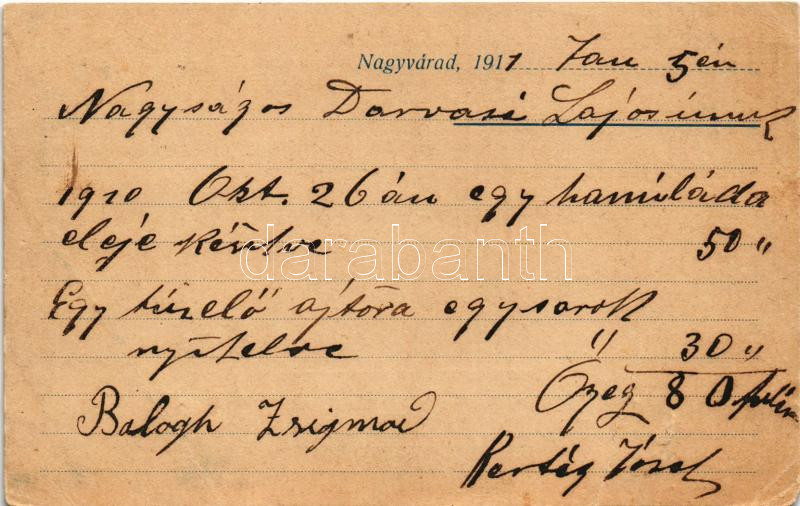 Nagyvárad, 1911 Jan 5én
Nagyságos Darvasi Lajos úrnak
1910 Okt. 26 án egy hamúláda
eleje késitve 50 "
Egy tüzelő ajtóra egy sarok
nyitelve " 30 "
Özeg 80 fillér
Balogh Zsigmond
Hertég József
darabanth